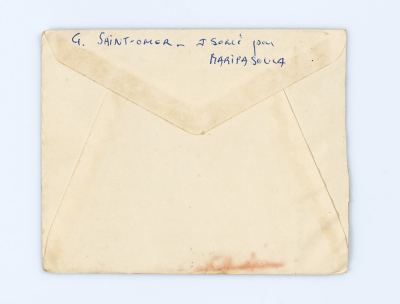 G. SAINT-OMER _ Isolé pour
MARIPASOULA